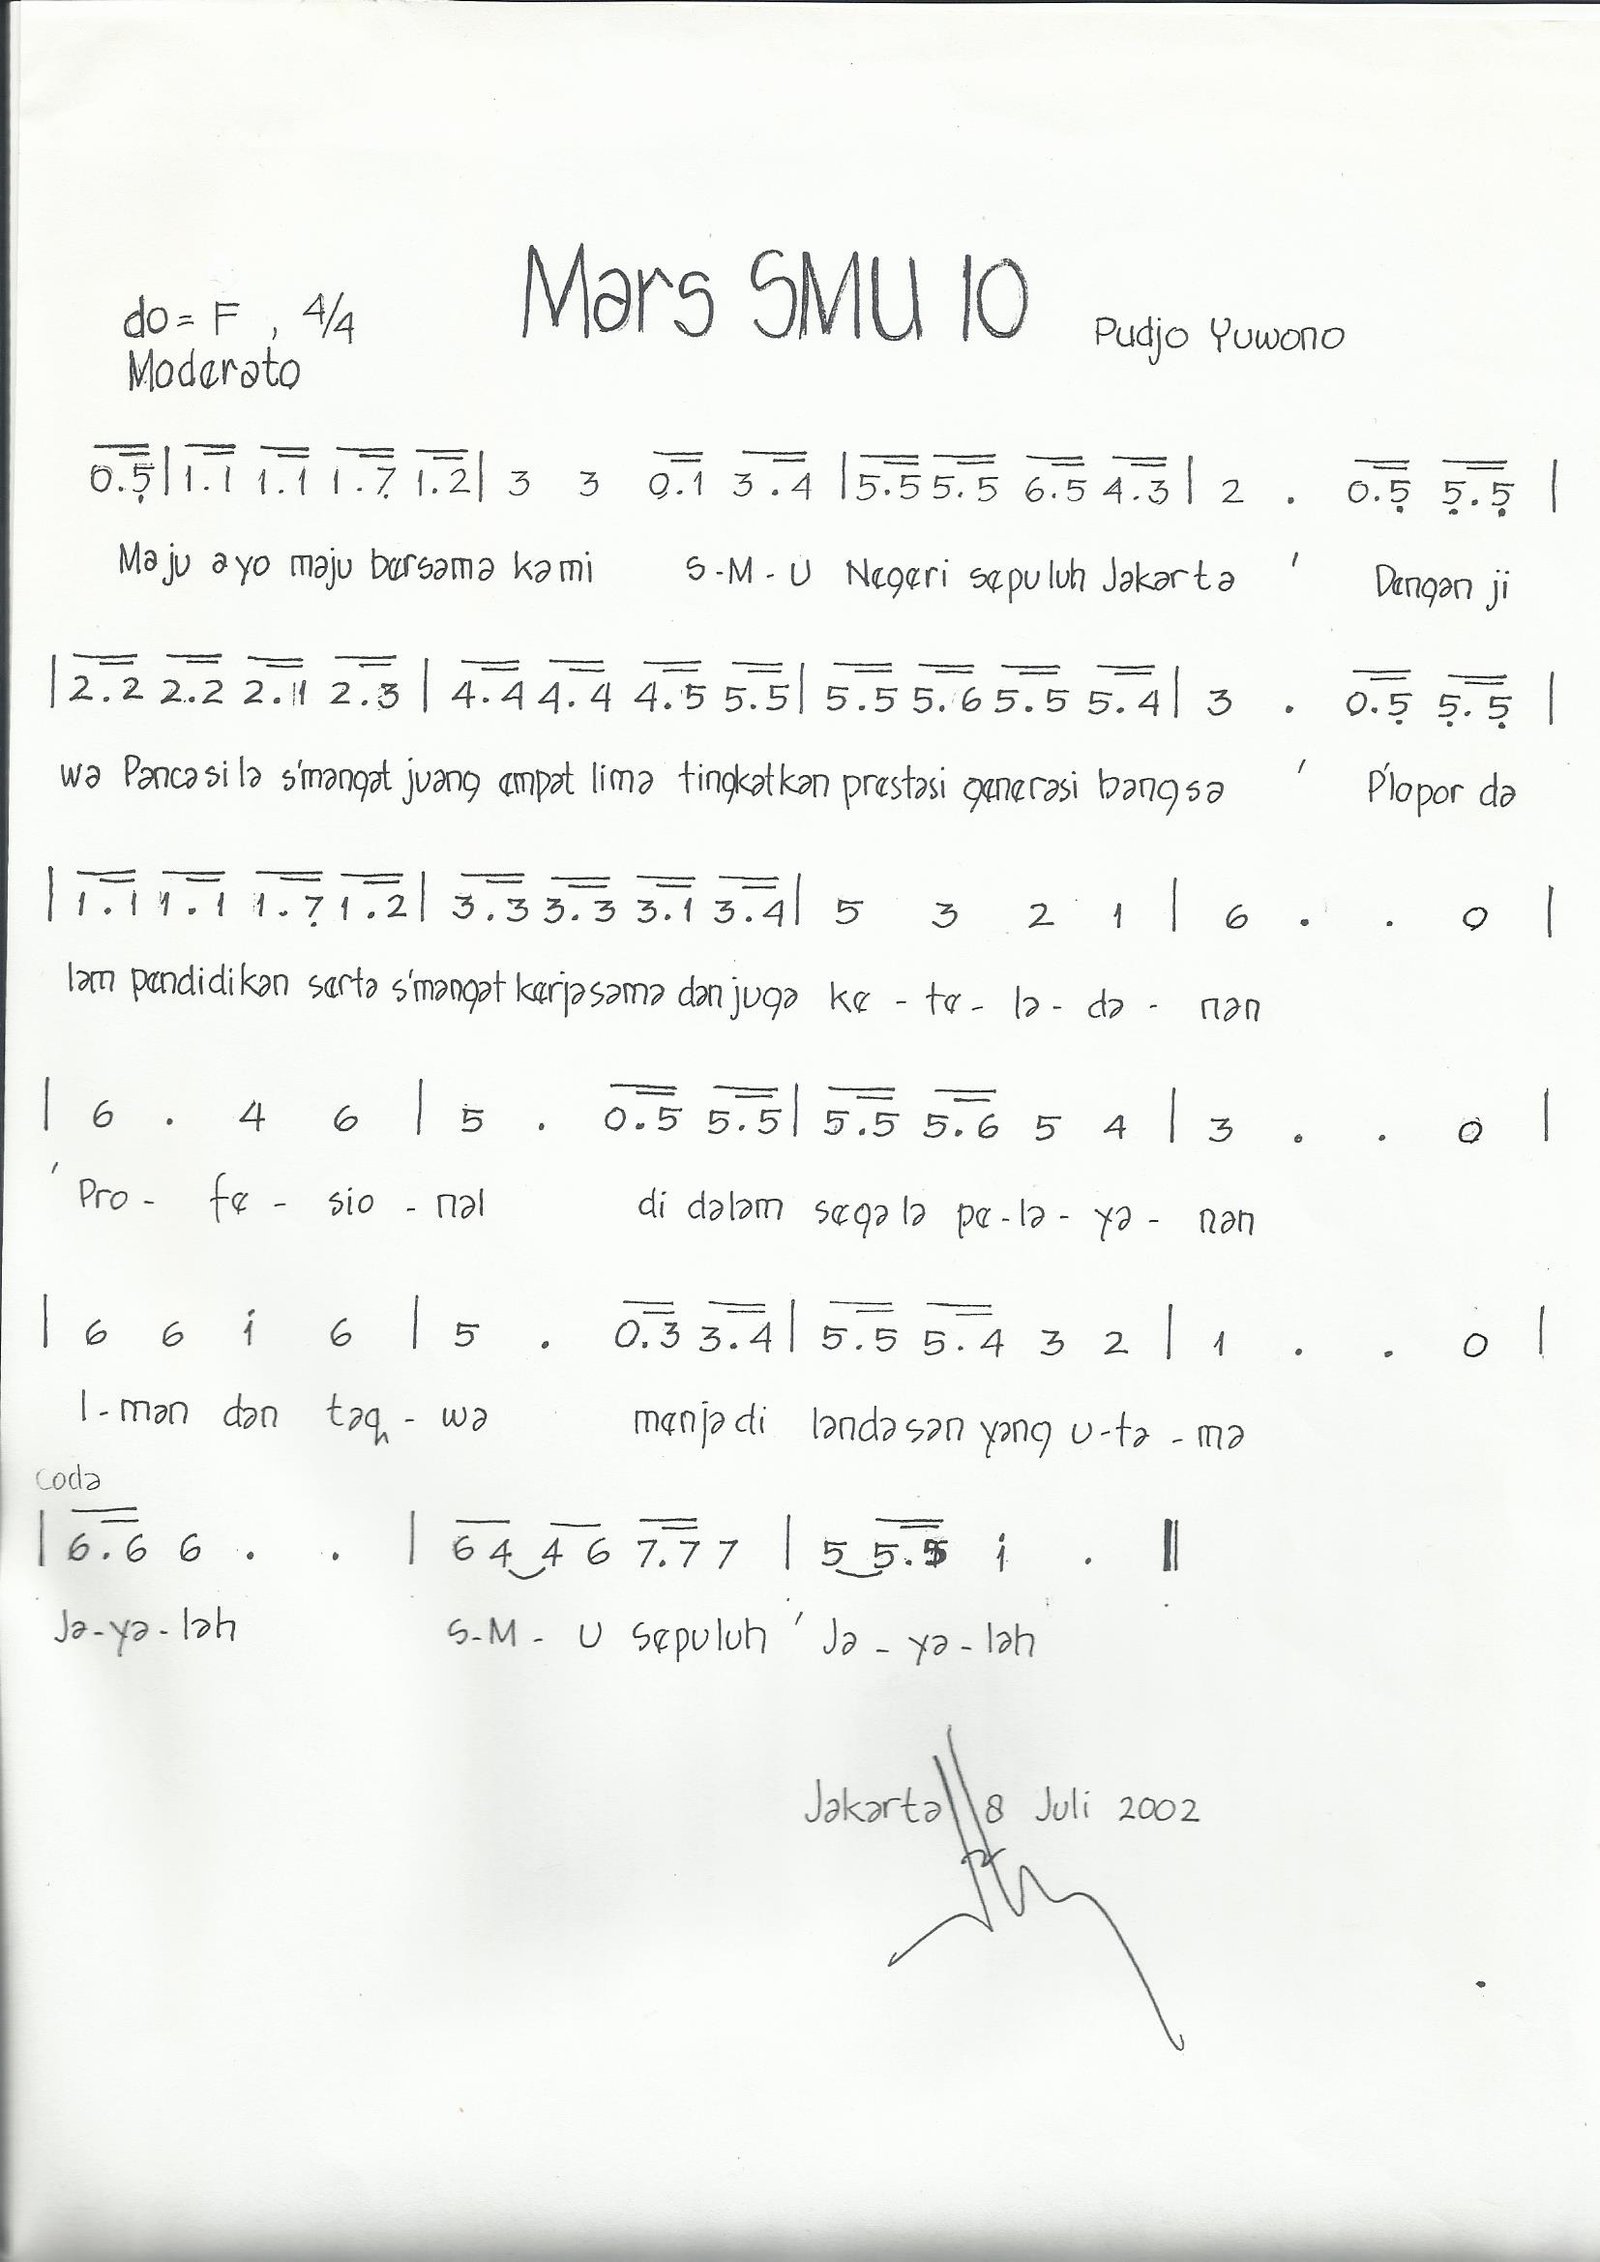 Mars SMU 10
do = F , 4/4
Pudjo Yuwono
Moderato
0.5̣ | 1.1 1.1 1.7̣ 1.2 | 3 3 0.1 3.4 | 5.5 5.5 6.5 4.3 | 2 . 0.5̣ 5̣.5̣ |
Maju ayo maju bersama kami S-M-U Negeri sepuluh Jakarta ' Dengan ji
| 2.2 2.2 2.1 2.3 | 4.4 4.4 4.5 5.5 | 5.5 5.6 5.5 5.4 | 3 . 0.5̣ 5̣.5̣ |
wa Pancasila s'mangat juang empat lima tingkatkan prestasi generasi bangsa ' P'lopor da
| 1.1 1.1 1.7̣ 1.2 | 3.3 3.3 3.1 3.4 | 5 3 2 1 | 6 . . 0 |
lam pendidikan serta s'mangat kerjasama dan juga ke - te - la - da - nan
| 6 . 4 6 | 5 . 0.5 5.5 | 5.5 5.6 5 4 | 3 . . 0 |
' Pro - fe - sio - nal di dalam segala pe - la - ya - nan
| 6 6 1̇ 6 | 5 . 0.3 3.4 | 5.5 5.4 3 2 | 1 . . 0 |
I - man dan taq - wa menjadi landasan yang u - ta - ma
Coda
| 6.6 6 . . | 6 4 4 6 7.7 7 | 5 5.5 1̇ . ||
Ja - ya - lah S - M - U sepuluh ' Ja - ya - lah
Jakarta 8 Juli 2002